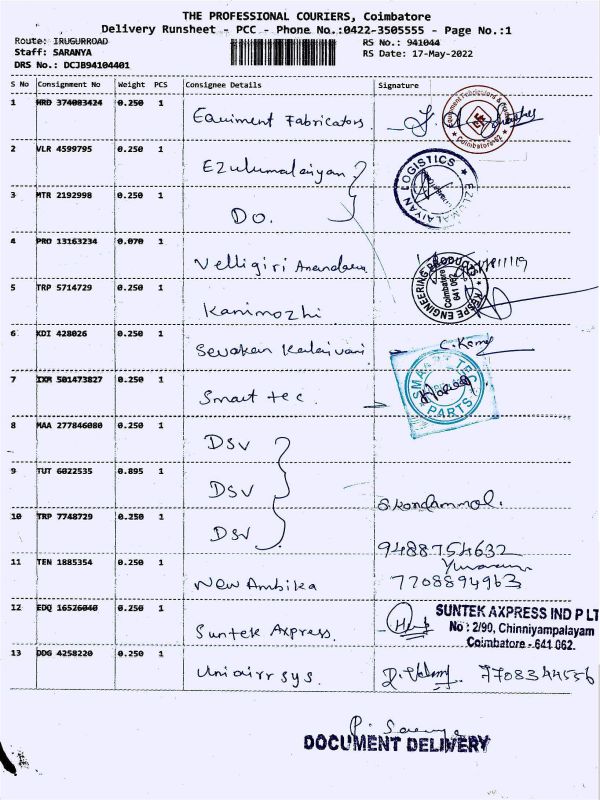 THE PROFESSIONAL COURIERS, Coimbatore
Delivery Runsheet - PCC - Phone No.:0422-3505555 - Page No.:1
Route: IRUGURROAD RS No.: 941044
Staff: SARANYA RS Date: 17-May-2022
DRS No.: DCJB94104401
S No Consignment No Weight PCS Consignee Details Signature
1 HRD 374083424 0.250 1 Equiment Fabricators.
Coimbatore-62
2 VLR 4599795 0.250 1 Ezulumalaiyan
EZLUMALAIYAN LOGISTICS
3 MTR 2192998 0.250 1 Do.
4 PRO 13163234 0.070 1 Velligiri
ENGINEERING PRODUCTS
Coimbatore
641 062
5 TRP 5714729 0.250 1 Kanimozhi
6 KDI 428026 0.250 1 Sevakan Kalaivani
7 IXM 501473827 0.250 1 Smart tec.
PARTS
8 MAA 277846080 0.250 1 DSV
9 TUT 6022535 0.895 1 DSV
10 TRP 7748729 0.250 1 DSV
9488754632
11 TEN 1885354 0.250 1 New Ambika 7708894963
12 EDQ 16526040 0.250 1 Suntek Axpress.
SUNTEK AXPRESS IND P LT
No : 2/90, Chinniyampalayam
Coimbatore - 641 062.
13 DDG 4258220 0.250 1 Uniairr sys. 7708344556
DOCUMENT DELIVERY